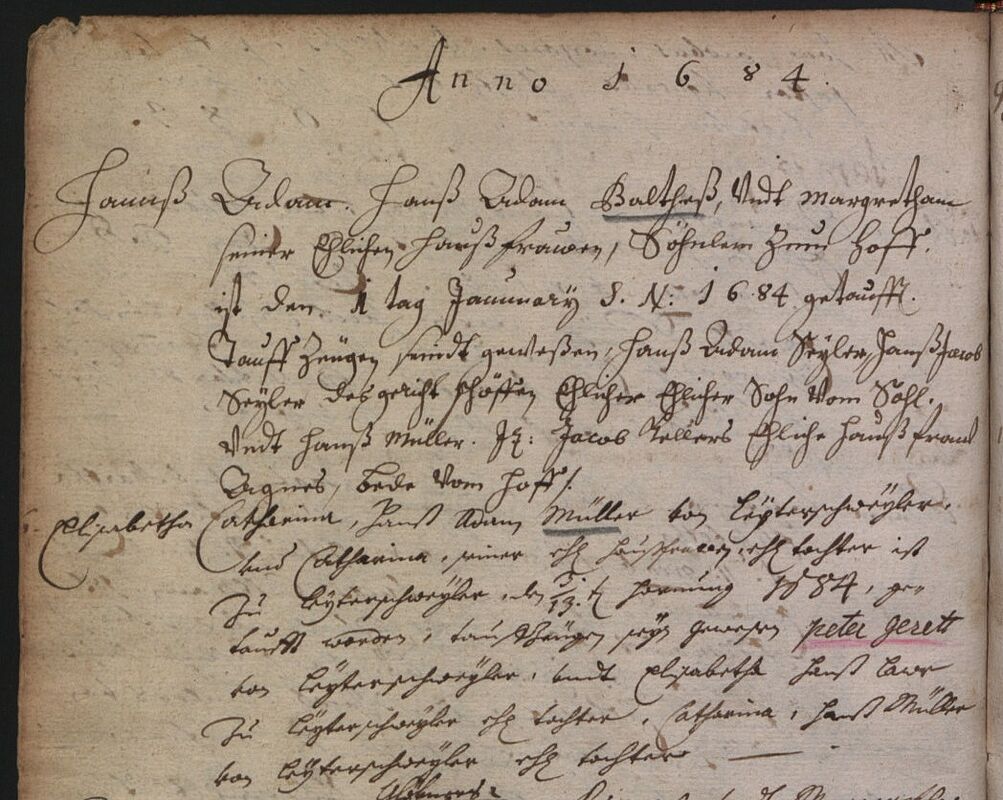 Anno 1684.
Hannß Adam. Hanß Adam Baltheß, Undt Margretham
seiner Ehlichen Haußfrawen, Söhnlein Zum Hoff.
ist den 1 tag Jannuary S. N: 1684 getaufft.
Tauff Zeugen seindt geweßen, Hanß Adam Seyler, Hanß Jacob
Seyler des gericht schöffen Ehlicher Ehlicher Sohn Vom Sohl.
Undt Hanß Müller. It: Jacob Tellers Ehliche Haußfraw
Agnes, bede Vom Hoff /.
Elisabetha Catharina, Hanß Adam Müller von Leyterschweyler,
und Catharina, seiner ehl haußfrawen, ehl tochter ist
Zu Leyterschweyler, den 3/13. Hornung 1684, ge-
taufft worden, tauffzeugen seyn gewesen peter gerett
von Leyterschweyler, undt Elisabetha Hanß
Zu Leyterschweyler ehl tochter, Catharina, Hanß Müller
von Leyterschweyler ehl tochter